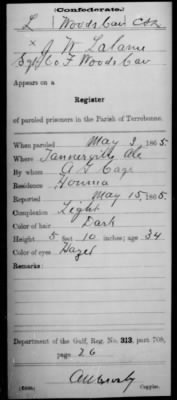 (Confederate.)
L | Woods' Cav | C.S.A.
x J. N. Lalann
Sgt Co F Woods Cav
Appears on a
Register
of paroled prisoners in the Parish of Terrebonne.
When paroled May 3, 1865.
Where Tannerville Ala
By whom A. G. Cage
Residence Houma
Reported May 15, 1865.
Complexion Light
Color of hair Dark
Height 5 feet 10 inches; age 34
Color of eyes Hazel
Remarks:
Department of the Gulf, Reg. No. 313, part 708,
page 26
Copyist.